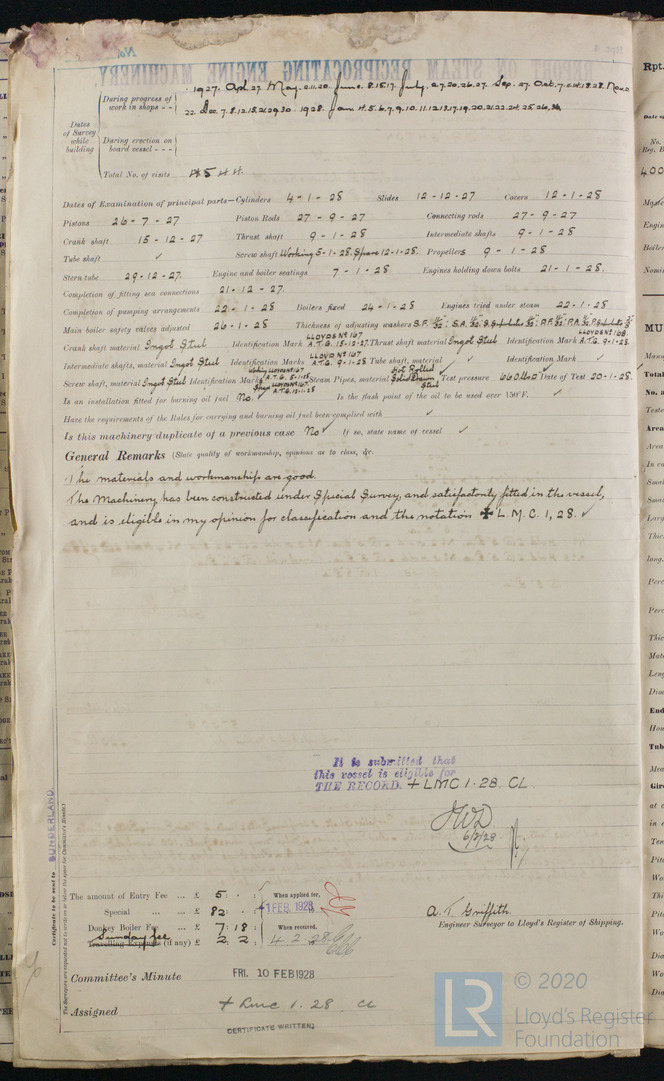 REPORT ON STEAM RECIPROCATING ENGINE MACHINERY.
Dates of Survey while building
During progress of work in shops - -
1927. Apl. 27. May. 2.11.20. June. 8.15.17. July. 6.7.20.26.27. Sep. 27. Oct. 7. 18.28. Nov. 2.
22. Dec. 7.8.12.15.21.29.30. 1928. Jan. 4.5.6.7.9.10.11.12.13.17.19.20.21.22.24.25.26.30.
During erection on board vessel - - -
Total No. of visits 44.
Dates of Examination of principal parts—Cylinders 4-1-28 Slides 12-12-27 Covers 12-1-28
Pistons 26-7-27 Piston Rods 27-9-27 Connecting rods 27-9-27
Crank shaft 15-12-27 Thrust shaft 9-1-28 Intermediate shafts 9-1-28
Tube shaft ✓ Screw shaft Working 5-1-28. Spare 12-1-28. Propellers 9-1-28
Stern tube 29-12-27. Engine and boiler seatings 7-1-28 Engines holding down bolts 21-1-28.
Completion of fitting sea connections 21-12-27.
Completion of pumping arrangements 22-1-28 Boilers fixed 24-1-28 Engines tried under steam 22-1-28
Main boiler safety valves adjusted 26-1-28 Thickness of adjusting washers S.F. S.A. P.F. P.A.
Crank shaft material Ingot Steel Identification Mark LLOYDS Nº 167 A.T.G. 15-12-27. Thrust shaft material Ingot Steel Identification Mark LLOYDS Nº 168. A.T.G. 9-1-28.
Intermediate shafts, material Ingot Steel Identification Marks LLOYD Nº 167 A.T.G. 9-1-28 Tube shaft, material ✓ Identification Mark ✓
Screw shaft, material Ingot Steel Identification Mark Working LLOYDS Nº 167 A.T.G. 5-1-28 Spare LLOYDS Nº 167 A.T.G. 12-1-28 Steam Pipes, material Hot Rolled Solid Drawn Steel Test pressure 660 lbs Date of Test 20-1-28.
Is an installation fitted for burning oil fuel No. ✓ Is the flash point of the oil to be used over 150°F. ✓
Have the requirements of the Rules for carrying and burning oil fuel been complied with ✓
Is this machinery duplicate of a previous case No ✓ If so, state name of vessel ✓
General Remarks (State quality of workmanship, opinions as to class, &c.
The materials and workmanship are good.
The Machinery has been constructed under Special Survey, and satisfactorily fitted in the vessel,
and is eligible in my opinion for classification and the notation ✠ L.M.C. 1, 28. ✓
It is submitted that
this vessel is eligible for
THE RECORD. + LMC 1·28. CL.
JWD
6/2/28
Certificate to be sent to SUNDERLAND.
The amount of Entry Fee ... £ 5 : - : When applied for,
Special ... ... £ 82 : - : 1 FEB 1928
Donkey Boiler Fee ... £ 7 : 18 : When received,
Sunday fee
Travelling Expenses (if any) £ 2 : 2 : 4.2.28
A. T. Griffith.
Engineer Surveyor to Lloyd's Register of Shipping.
Committee's Minute FRI. 10 FEB 1928
Assigned + Lmc 1.28 CL
CERTIFICATE WRITTEN
LR
© 2020
Lloyd's Register
Foundation